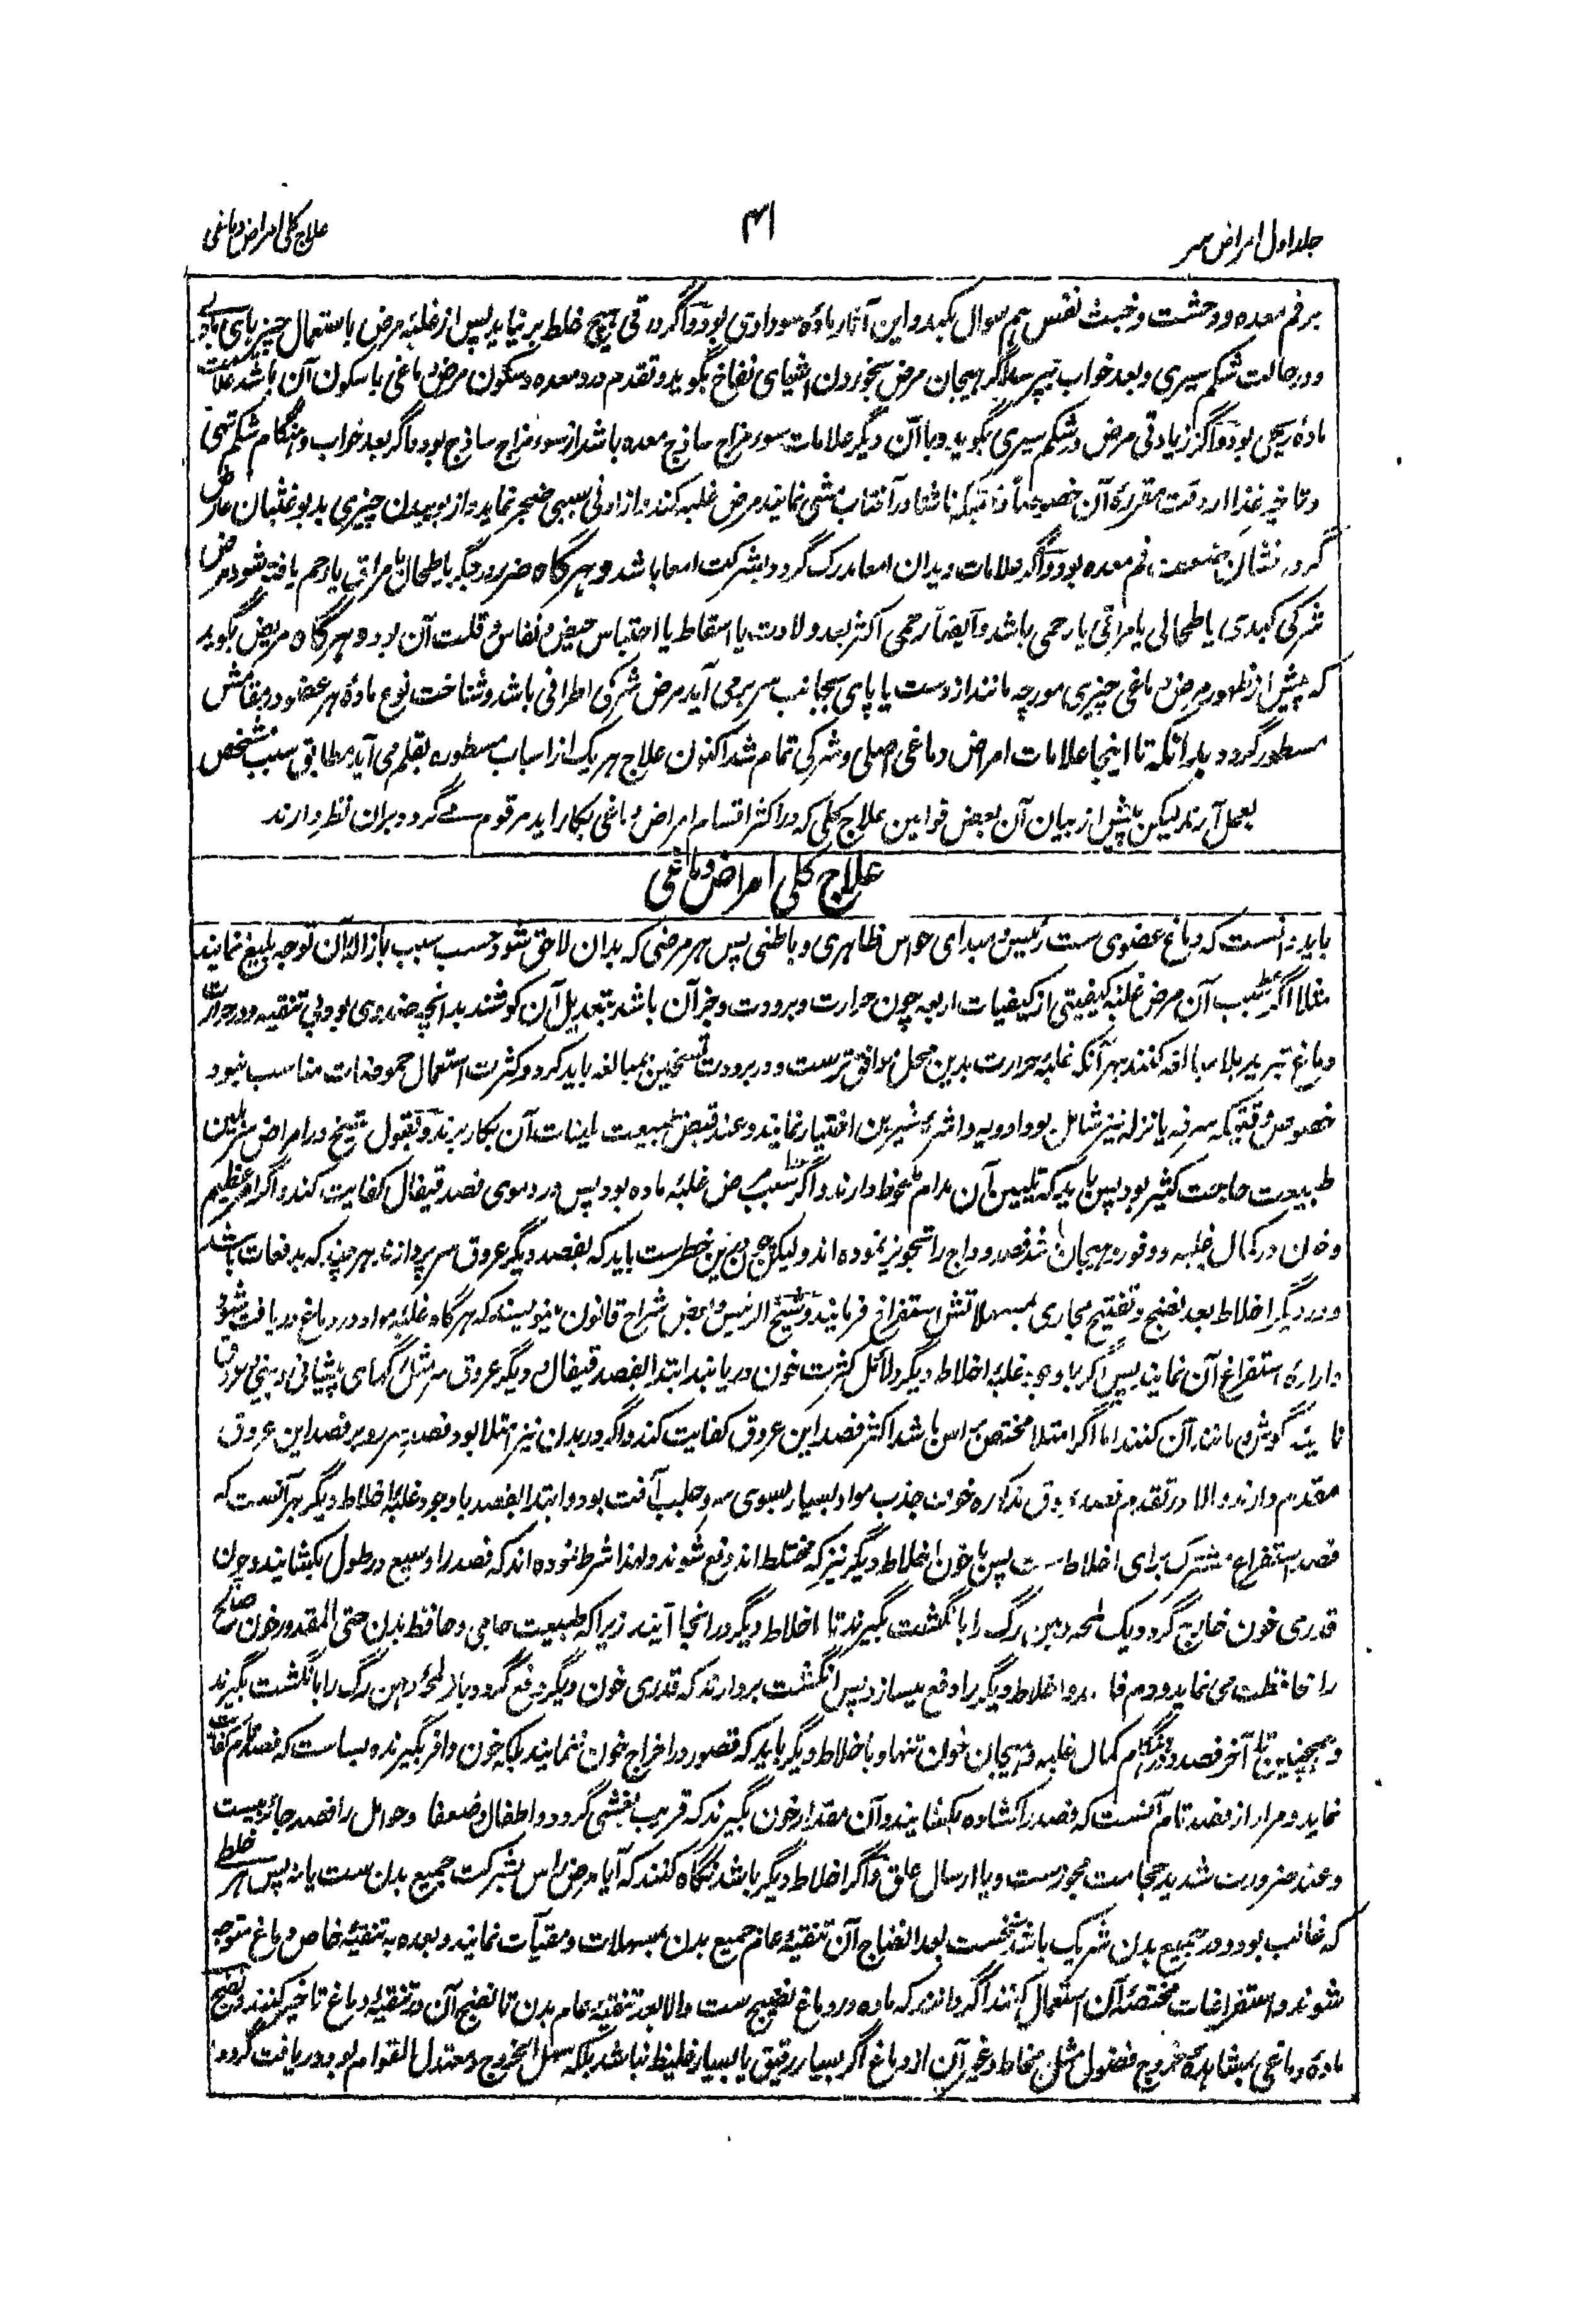 جلد اول امراض سر
۴۱
علاج کلی امراض دماغی
بر فم معده و وحشت و خبث نفس هم سوال بکند و این آثار مادّه سوداوی بود و اگر در قی هیچ خلط بر نیاید پس از غلبه مرض باستعمال چیزهای بادی
و در حالت شکم سیری و بعد خواب بپرسد اگر هیجان مرض بخوردن اشیای نفاخ بگوید و تقدم درد معده و سکون مرض دماغی با سکون آن باشد علامت
مادهٔ ریحی بود و اگر زیادتی مرض در شکم سیری بگوید و با آن دیگر علامات سوء مزاج ساذج معده باشد از سوء مزاج ساذج بود و اگر بعد خواب و هنگام شکم تهی
و تاخیر غذا از وقت مقرره آن خصوصاً وقتیکه ناشتا در آفتاب مشی نمایند مرض غلبه کند و از ادنی سببی ضجر نماید و از بوییدن چیزی بدبو غثیان عارض
گردد نشان ضعف فم معده بود و اگر علامات دیدان امعا مدرک گردد بشرکت امعا باشد و هرگاه ضرر در جگر یا طحال یا مراق یا رحم یافته شود مرض
شرکی کبدی یا طحالی یا مراقی یا رحمی باشد و ایضاً رحمی اکثر بعد ولادت یا اسقاط یا احتباس حیض و نفاس و قلت آن بود و هرگاه مریض بگوید
که پیش از ظهور مرض دماغی چیزی مورچه مانند از دست یا پای بجانب سر برمی آید مرض شرکی اطرافی باشد و شناخت نوع مادهٔ هر عضو در مقامش
مسطور گردد بدانکه تا اینجا علامات امراض دماغی اصلی و شرکی تمام شد اکنون علاج هر یک از اسباب مسطوره بقلم می آید مطابق سبب مشخص
بعمل آرند لیکن پیش از بیان آن بعض قوانین علاج کلی که در اکثر اقسام امراض دماغی بکار آید مرقوم مے گردد بران نظر دارند
علاج کلی امراض دماغی
باید دانست که دماغ عضوی ست رئیس و مبدای حواس ظاهری و باطنی پس هر مرضی که بدان لاحق شود حسب سبب بازالهٔ آن توجه بلیغ نمایند
مثلا اگر سبب آن مرض غلبه کیفیتی از کیفیات اربعه چون حرارت و برودت و جز آن باشد بتعدیل آن کوشند بدانچه ضروری بود بی تنقیه و در حرارت
دماغ تبرید بلا مبالغه کنند بهر آنکه غلبهٔ حرارت بدین محل موافق ترست و در برودت تسخین بمبالغه باید کرد و کثرت استعمال حموضات مناسب نبود
خصوص وقتیکه سرفه یا نزله نیز شامل بود و ادویه و اشربه شیرین اختیار نمایند و عند قبض طبیعت ملینات آن بکار برند و بقول شیخ در امراض سر تلیین
طبیعت حاجت کثیر بود پس باید که تلیین آن مدام ملحوظ دارند و اگر سبب مرض غلبهٔ ماده بود پس در دموی فصد قیفال کفایت کند و اگر امر عظیم
و خون در کمال غلبه و وفور و هیجان باشد فصد وداج را تجویز نموده اند و لیکن چون درین خطرست باید که بفصد دیگر عروق سر پردازند هر چند که بدفعات باشد
و در دیگر اخلاط بعد نضج و تفتیح مجاری بمسهلاتش استفراغ فرمایند و شیخ الرئیس و بعض شراح قانون مینویسند که هرگاه غلبهٔ مواد در دماغ دریافت شود
و ارادهٔ استفراغ آن نمایند پس اگر با وجود غلبهٔ اخلاط دیگر دلائل کثرت خون دریابند ابتدا بفصد قیفال و دیگر عروق سر مثل رگهای پیشانی و بینی و عروق
گوش و مانند آن کنند اما اگر امتلا مختص براس باشد اکثر فصد این عروق کفایت کند و اگر در بدن نیز امتلا بود فصد سررو بر فصد این عروق
مقدم دارند و الا در تقدم فصد عروق مذکوره خوف جذب مواد بسیار بسوی سر و جلب آفت بود و ابتدا بفصد با وجود غلبهٔ اخلاط دیگر بهر آنست که
فصد استفراغ مشترک برای اخلاط ست پس با خون اخلاط دیگر نیز که مختلط اند دفع شوند و لهذا شرط نموده اند که فصد را وسیع در طول بکشایند و چون
قدری خون خارج گردد یک لمحه دهن رگ را بانگشت بگیرند تا اخلاط دیگر در انجا آیند زیرا که طبیعت حامی و حافظ بدن حتی المقدور خون صالح
را محافظت می نماید و دم فاسد و اخلاط دیگر را دفع میسازد پس انگشت بردارند که قدری خون دیگر دفع گردد باز لمحهٔ دهن رگ را بانگشت بگیرند
و همچنین تا آخر فصد و در هنگام کمال غلبه و هیجان خون تنها و با اخلاط دیگر باید که قصور در اخراج خون ننمایند بلکه خون وافر بگیرند و بسا ست که فصد تام کفایت
نماید و مراد از فصد تام آنست که فصد را کشاده بکشایند و آن مقدار خون بگیرند که قریب بغشی گردد و اطفال و ضعفا و حوامل را فصد جائز نیست
و عند ضرورت شدید حجامت مجوز ست و یا ارسال علق و اگر اخلاط دیگر باشد نگاه کنند که آیا مرض راس بشرکت جمیع بدن ست یا نه پس هر خلط
که غالب بود و در جمیع بدن شریک باشد نخست بعد انضاج آن تنقیهٔ عام جمیع بدن بمسهلات و مقیآت نمایند و بعده به تنقیهٔ خاص دماغ متوجه
شوند و استفراغات مختصهٔ آن استعمال کنند اگر دانند که ماده در دماغ نضیج ست و الا بعد تنقیهٔ عام بدن تا نضج آن در تنقیهٔ دماغ تاخیر کنند و نضج
مادهٔ دماغی بمشاهدهٔ خروج فضول مثل مخاط و غیر آن از دماغ اگر بسیار رقیق یا بسیار غلیظ نباشد بلکه سهل الخروج و معتدل القوام بود دریافت گردد